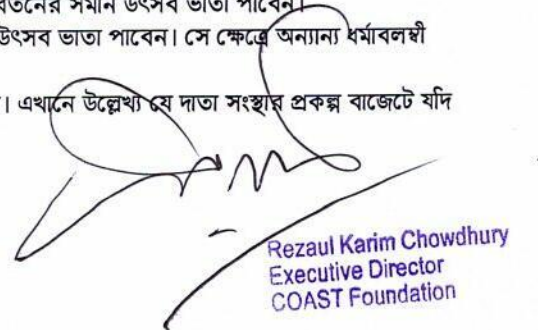 বেতনের সমান উৎসব ভাতা পাবেন।
উৎসব ভাতা পাবেন। সে ক্ষেত্রে অন্যান্য ধর্মাবলম্বী
। এখানে উল্লেখ্য যে দাতা সংস্থার প্রকল্প বাজেটে যদি
Rezaul Karim Chowdhury
Executive Director
COAST Foundation